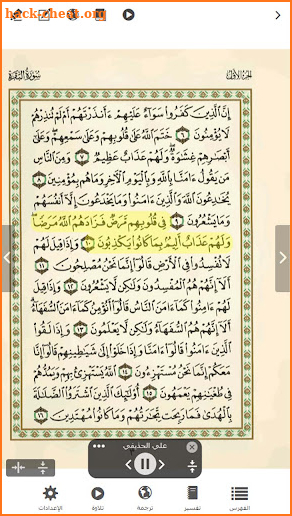 hack-cheat.org
سُورَةُ البَقَرَةِ
الجُزْءُ الأَوَّلُ
إِنَّ ٱلَّذِينَ كَفَرُواْ سَوَآءٌ عَلَيۡهِمۡ ءَأَنذَرۡتَهُمۡ أَمۡ لَمۡ تُنذِرۡهُمۡ
لَا يُؤۡمِنُونَ ٦ خَتَمَ ٱللَّهُ عَلَىٰ قُلُوبِهِمۡ وَعَلَىٰ سَمۡعِهِمۡۖ وَعَلَىٰٓ
أَبۡصَٰرِهِمۡ غِشَٰوَةٞۖ وَلَهُمۡ عَذَابٌ عَظِيمٞ ٧ وَمِنَ ٱلنَّاسِ
مَن يَقُولُ ءَامَنَّا بِٱللَّهِ وَبِٱلۡيَوۡمِ ٱلۡأٓخِرِ وَمَا هُم بِمُؤۡمِنِينَ ٨
يُخَٰدِعُونَ ٱللَّهَ وَٱلَّذِينَ ءَامَنُواْ وَمَا يَخۡدَعُونَ إِلَّآ أَنفُسَهُمۡ
وَمَا يَشۡعُرُونَ ٩ فِي قُلُوبِهِم مَّرَضٞ فَزَادَهُمُ ٱللَّهُ مَرَضٗاۖ
وَلَهُمۡ عَذَابٌ أَلِيمُۢ بِمَا كَانُواْ يَكۡذِبُونَ ١٠ وَإِذَا قِيلَ لَهُمۡ
لَا تُفۡسِدُواْ فِي ٱلۡأَرۡضِ قَالُوٓاْ إِنَّمَا نَحۡنُ مُصۡلِحُونَ ١١
أَلَآ إِنَّهُمۡ هُمُ ٱلۡمُفۡسِدُونَ وَلَٰكِن لَّا يَشۡعُرُونَ ١٢ وَإِذَا قِيلَ
لَهُمۡ ءَامِنُواْ كَمَآ ءَامَنَ ٱلنَّاسُ قَالُوٓاْ أَنُؤۡمِنُ كَمَآ ءَامَنَ ٱلسُّفَهَآءُۗ
أَلَآ إِنَّهُمۡ هُمُ ٱلسُّفَهَآءُ وَلَٰكِن لَّا يَعۡلَمُونَ ١٣ وَإِذَا لَقُواْ
ٱلَّذِينَ ءَامَنُواْ قَالُوٓاْ ءَامَنَّا وَإِذَا خَلَوۡاْ إِلَىٰ شَيَٰطِينِهِمۡ قَالُوٓاْ إِنَّا
مَعَكُمۡ إِنَّمَا نَحۡنُ مُسۡتَهۡزِءُونَ ١٤ ٱللَّهُ يَسۡتَهۡزِئُ بِهِمۡ وَيَمُدُّهُمۡ
فِي طُغۡيَٰنِهِمۡ يَعۡمَهُونَ ١٥ أُوْلَٰٓئِكَ ٱلَّذِينَ ٱشۡتَرَوُاْ ٱلضَّلَٰلَةَ
بِٱلۡهُدَىٰ فَمَا رَبِحَت تِّجَٰرَتُهُمۡ وَمَا كَانُواْ مُهۡتَدِينَ ١٦
علي الحذيفي
الفهرس
تفسير
ترجمة
تلاوة
الإعدادات
hack-cheat.org